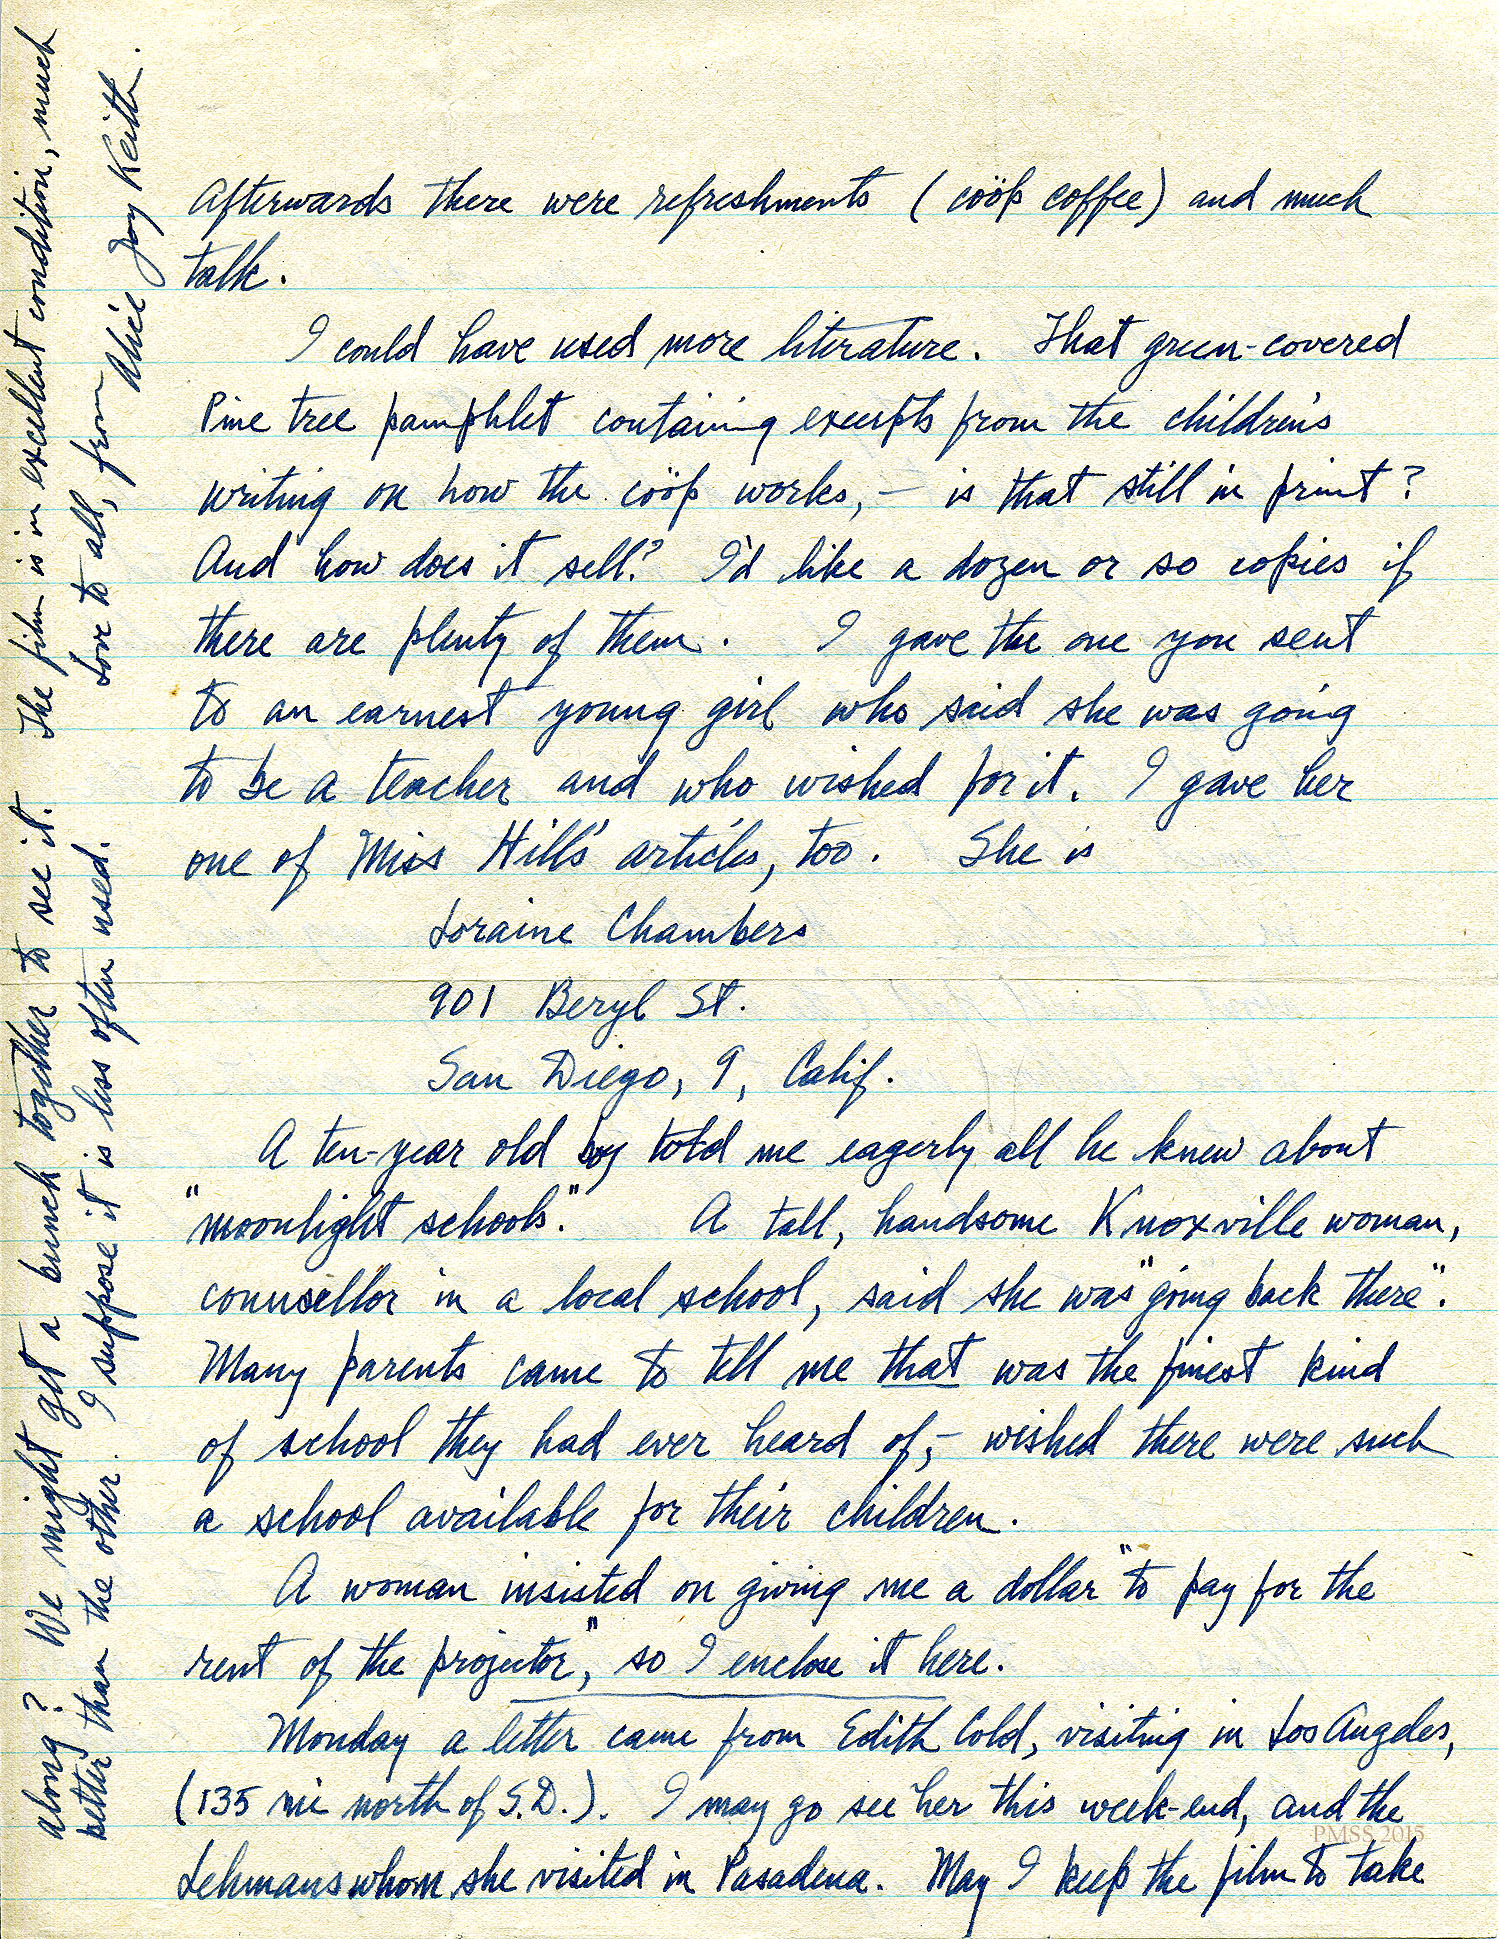 Afterwards there were refreshments (coöp coffee) and much
talk.
I could have used more literature. That green-covered
Pine tree pamphlet containing excerpts from the children's
writing on how the coöp works, – is that still in print?
And how does it sell? I'd like a dozen or so copies if
there are plenty of them. I gave the one you sent
to an earnest young girl who said she was going
to be a teacher and who wished for it. I gave her
one of Miss Hill's articles, too. She is
Loraine Chambers
901 Beryl St.
San Diego, 9, Calif.
A ten-year old boy told me eagerly all he knew about
"moonlight schools." A tall, handsome Knoxville woman,
counsellor in a local school, said she was "going back there".
Many parents came to tell me that was the finest kind
of school they had ever heard of, – wished there were such
a school available for their children.
A woman insisted on giving me a dollar "to pay for the
rent of the projector," so I enclose it here.
Monday a letter came from Edith Cold, visiting in Los Angeles,
(135 mi north of S.D.). I may go see her this week-end, and the
Lehmans whom she visited in Pasadena. May I keep the film to take
along? We might get a bunch together to see it. The film is in excellent condition, much
better than the other. I suppose it is less often used.
Love to all, from
Alice Joy Keith.
PMSS 2015